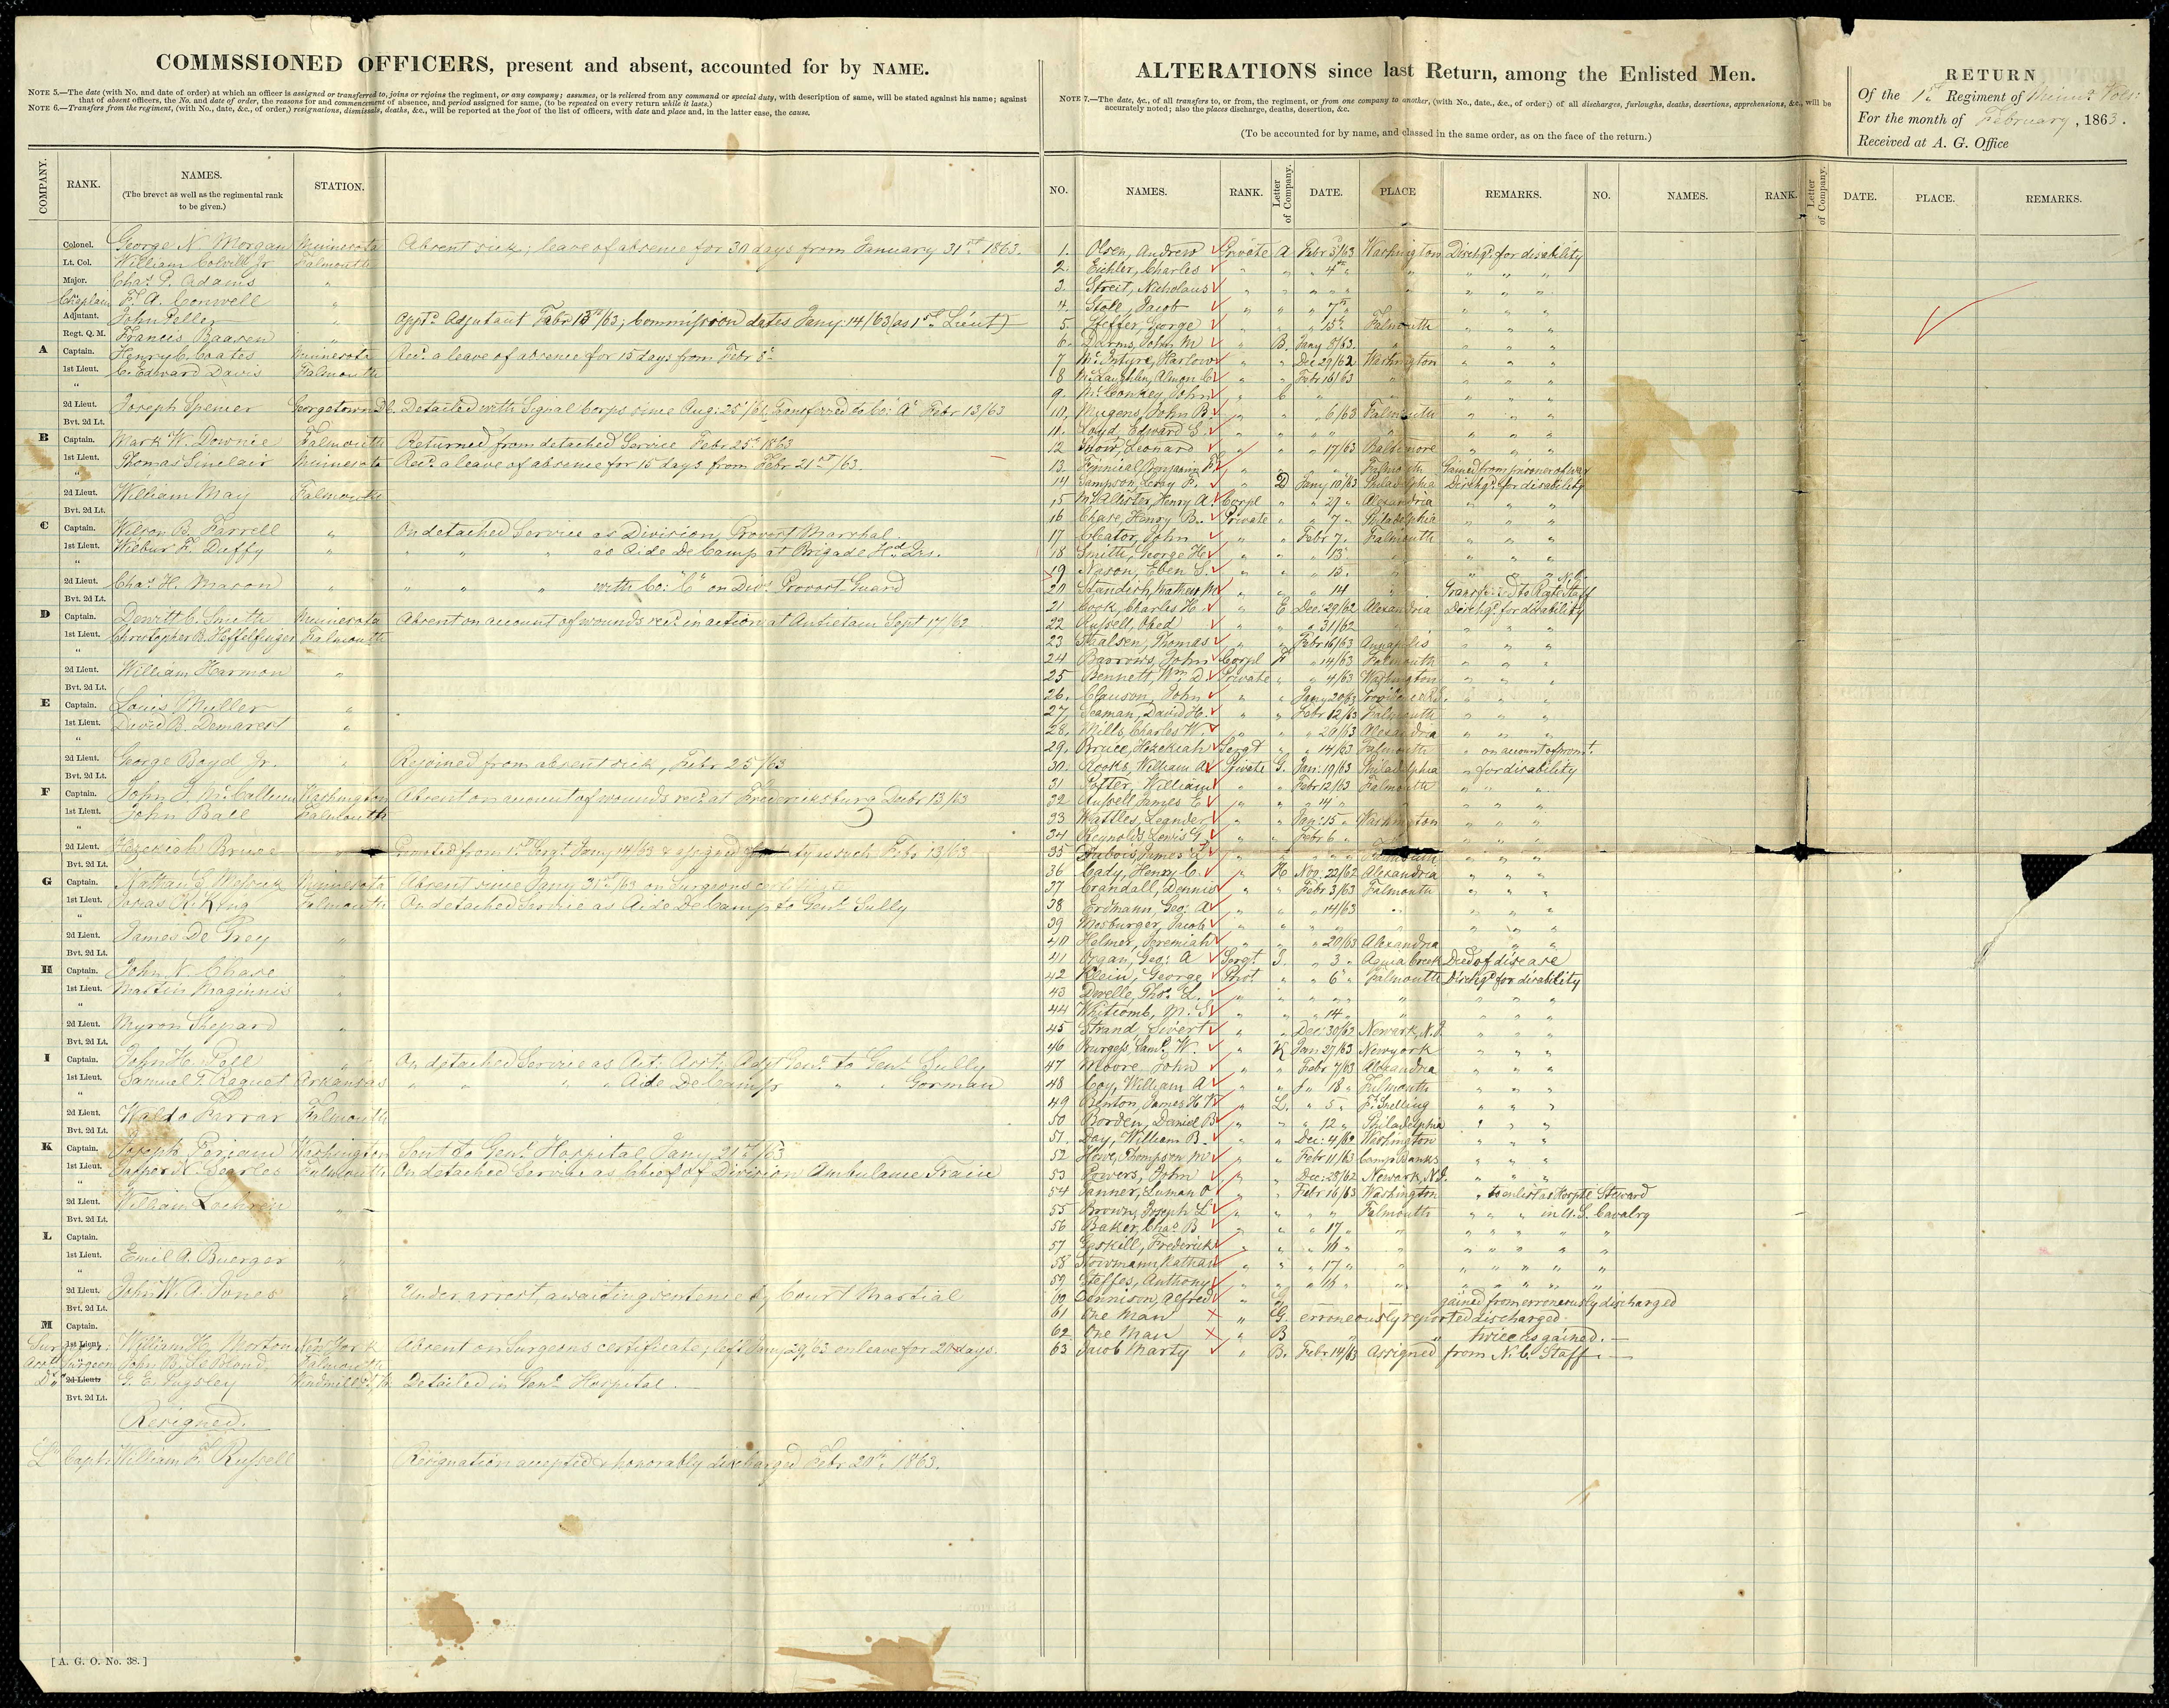 COMMSSIONED OFFICERS, present and absent, accounted for by NAME.
NOTE 5.—The date (with No. and date of order) at which an officer is assigned or transferred to, joins or rejoins the regiment, or any company; assumes, or is relieved from any command or special duty, with description of same, will be stated against his name; against
that of absent officers, the No. and date of order, the reasons for and commencement of absence, and period assigned for same, (to be repeated on every return while it lasts.)
NOTE 6.—Transfers from the regiment, (with No., date, &c., of order,) resignations, dismissals, deaths, &c., will be reported at the foot of the list of officers, with date and place and, in the latter case, the cause.
COMPANY. RANK. NAMES. STATION.
(The brevet as well as the regimental rank
to be given.)
Colonel. George N. Morgan Minnesota Absent sick; leave of absence for 30 days from January 31st 1863.
Lt. Col. William Colvill Jr Falmouth
Major. Chas. P. Adams "
Chaplain F. A. Conwell "
Adjutant. John Peller " appt. Adjutant Febr 13th/63; Commission dates Jany. 14/63 (as 1st Lieut)
Regt. Q. M. Francis Baasen "
A Captain. Henry C. Coates Minnesota Recd. a leave of absence for 15 days from Febr 5th
1st Lieut. C. Edward Davis Falmouth
"
2d Lieut. Joseph Spencer Georgetown D.C. Detailed with Signal Corps since Aug: 25th/61. Transferred to Co: "A" Febr 13/63
Bvt. 2d Lt.
B Captain. Mark W. Downie Falmouth Returned from detached Service Febr 25th 1863
1st Lieut. Thomas Sinclair Minnesota Recd. a leave of absence for 15 days from Febr 21st/63.
"
2d Lieut. William May Falmouth
Bvt. 2d Lt.
C Captain. Wilson B. Farrell " On detached Service as Division Provost Marshal.
1st Lieut. Wilbur F. Duffy " " " " as Aide De Camp at Brigade Hd. Qrs.
"
2d Lieut. Chas. H. Mason " " " " with Co: "C" on Div. Provost Guard
Bvt. 2d Lt.
D Captain. Dewitt C. Smith Minnesota Absent on account of wounds recd. in action at Antietam Sept 17/62
1st Lieut. Christopher B. Heffelfinger Falmouth
"
2d Lieut. William Harmon "
Bvt. 2d Lt.
E Captain. Louis Muller "
1st Lieut. David B. Demarest "
"
2d Lieut. George Boyd Jr. " Rejoined from absent sick, Febr 25/63
Bvt. 2d Lt.
F Captain. John J. McCallum Washington Absent on account of wounds recd. at Fredericksburg Decbr 13/63
1st Lieut. John Ball Falmouth
"
2d Lieut. Hezekiah Bruce " Promoted from 1st Sergt Jany 14/63 & assigned to duty as such Febr 13/63
Bvt. 2d Lt.
G Captain. Nathan S. Messick Minnesota Absent since Jany 31st/63 on Surgeons certificate
1st Lieut. Josias R. King Falmouth On detached Service as Aide De Camp to Genl. Sully
"
2d Lieut. James De Grey "
Bvt. 2d Lt.
H Captain. John N. Chase "
1st Lieut. Martin Maginnis "
"
2d Lieut. Myron Shepard "
Bvt. 2d Lt.
I Captain. John H. Pell " On detached Service as Act. Asst. Adjt Genl. to Genl. Sully
1st Lieut. Samuel T. Raguet Arkansas " " " " Aide De Camp " " Gorman
"
2d Lieut. Waldo Farrar Falmouth
Bvt. 2d Lt.
K Captain. Joseph Periam Washington Sent to Genl. Hospital Jany 21st/63
1st Lieut. Jasper N. Searles Falmouth On detached Service as Chief of Division Ambulance Train
"
2d Lieut. William Lochren "
Bvt. 2d Lt.
L Captain.
1st Lieut. Emil A. Buerger "
"
2d Lieut. John W. A. Jones " Under arrest, awaiting sentence by Court Martial
Bvt. 2d Lt.
M Captain.
1st Lieut. William H. Morton New York Absent on Surgeons certificate; left Jany 29/63 on leave for 20 days.
Asst. Surgeon John B. Le Blond Falmouth
2d Lieut. Detailed in Genl. Hospital.
Bvt. 2d Lt.
Resigned.
"L" Capt. William F. Russell Resignation accepted & honorably discharged Febr 20th. 1863.
[A. G. O. No. 38.]
ALTERATIONS since last Return, among the Enlisted Men.
NOTE 7.—The date, &c., of all transfers to, or from, the regiment, or from one company to another, (with No., date., &c., of order;) of all discharges, furloughs, deaths, desertions, apprehensions, &c., will be
accurately noted; also the places discharge, deaths, desertion, &c.
(To be accounted for by name, and classed in the same order, as on the face of the return.)
RETURN
Of the 1st Regiment of Minns. Vols.
For the month of February, 1863.
Received at A. G. Office
NO. NAMES. RANK. Letter of Company. DATE. PLACE REMARKS. NO. NAMES. RANK. Letter of Company. DATE. PLACE. REMARKS.
1. Olsen, Andrew Private A Febr 3/63 Washington Dischgd. for disability
2. Eichler, Charles " " " 4th " " " " "
3. Streit, Nicholaus " " " " " " " "
4. Stole, Jacob " " " 7th " " " "
5. Steffer, George " " " 15th Falmouth " " "
6. Darms, John M " B. Jany 8/63. " " " "
7 McIntyre, Harlow " " Dec 29/62 Washington " " "
8 McLaughlin, Almon C. " " Febr 16/63 " " " "
9. McConkey, John " C " " " " "
10. Mugens, John B. " " " 6/63 Falmouth " " "
11. Loyd, Edward S. " " " " " " " "
12 Snow, Leonard " " " 17/63 Baltimore " " "
13. Fennical, Benjamin F. " " " " Falmouth Gained from prisoner of war
14 Sampson, Leray P. " D Jany 10/63 Philadelphia Dischgd. for disability
15 McAlister, Henry A. Corpl " " 27 " Alexandria " " "
16 Chase, Henry B. Private " " 7 " Philadelphia " " "
17 Cleator, John " " Febr 7. Falmouth " " "
18 Smith, George H. " " " 13 " " " "
19. Nason, Eben S. " " " 13. " " " "
20 Standish " " " 14 " Transfd. to Regt. N.C. Staff
21 Cook, Charles H. " E Dec. 29/62 Alexandria Dischgd. for disability
22 Russell, Obed " " " 31/62 " " " "
23 Staalsen, Thomas " " Febr 16/63 Annapolis " " "
24 Barrows, John Corpl F " 14/63 Falmouth " " "
25 Bennett, Wm. D. Private " " 4/63 Washington " " "
26. Clauson, John " " Jany 20/63 Providence R.I. " " "
27. Seaman, David H. " " Febr 12/63 Falmouth " " "
28. Mills, Charles W. " " " 20/63 Alexandria " " "
29. Bruce, Hezekiah Sergt " " 14/63 Falmouth " on account of promt.
30. Rooks, William A. Private G. Jan: 19/63 Philadelphia " for disability
31 Potter, William " " Febr 12/63 Falmouth " " "
32 Russell James E " " " 14 " " " " "
33 Wattles, Leander " " Jan: 15 " Washington " " "
34 Reynolds, Lewis G. " " Febr 6 " " " " "
35 Dubois, James L. " " " " " Falmouth " " "
36 Cady, Henry C. " H Nov. 22/62 Alexandria " " "
37 Crandall, Dennis " " Febr 3/63 Falmouth " " "
38 Erdmann, Geo: A " " " 14/63 " " " "
39 Mosburger, Jacob " " " " " " " "
40 Helmer, Jeremiah " " " 20/63 Alexandria " " "
41 Organ, Geo: A Sergt. I. " 3 " Aquia Creek Died of disease
42 Klein, George Privt. " " 6 " Falmouth Dischgd. for disability
43 Dwelle, Thos. L. " " " " " " " " "
44 Whitcomb, M. S. " " " 14 " " " " "
45 Strand, Sivert " " Dec: 30/62 Newark, N.J. " " "
46 Burgess, Saml. W. " K Jan 27/63 New york " " "
47 Moore, John " " Febr 7/63 Alexandria " " "
48 Coy, William A " " " 18 " Falmouth " " "
49 Benton, James H. " L. " 5 " Ft. Snelling " " "
50 Borden, Daniel B " " " 12 " Philadelphia " " "
51. Day, William B. " " Dec: 4/62 Washington " " "
52 Howe, Thompson M " " Febr 11/63 Camp Banks " " "
53 Powers, John " " Dec: 28/62 Newark, N.J. " " "
54 Tanner, Luman O " " Febr 16/63 Washington " to enlist as Hosptl Steward
55 Brown, Joseph L " " " " Falmouth " " " in U.S. Cavalry
56 Baker, Chas. B " " " 17 " " " " " " "
57 Gaskill, Frederick " " " 16 " " " " " " "
58 Bowman, Nathan " " " 17 " " " " " " "
59 Steffes, Anthony " " " 16 " " " " " " "
60 Dennison, Alfred " G gained from erroneously discharged
61 One Man " G. erroneously reported discharged.
62 One Man " B " " twice as gained.
63 Jacob Marty " B. Febr 14/63 Assigned from N. C. Staff.